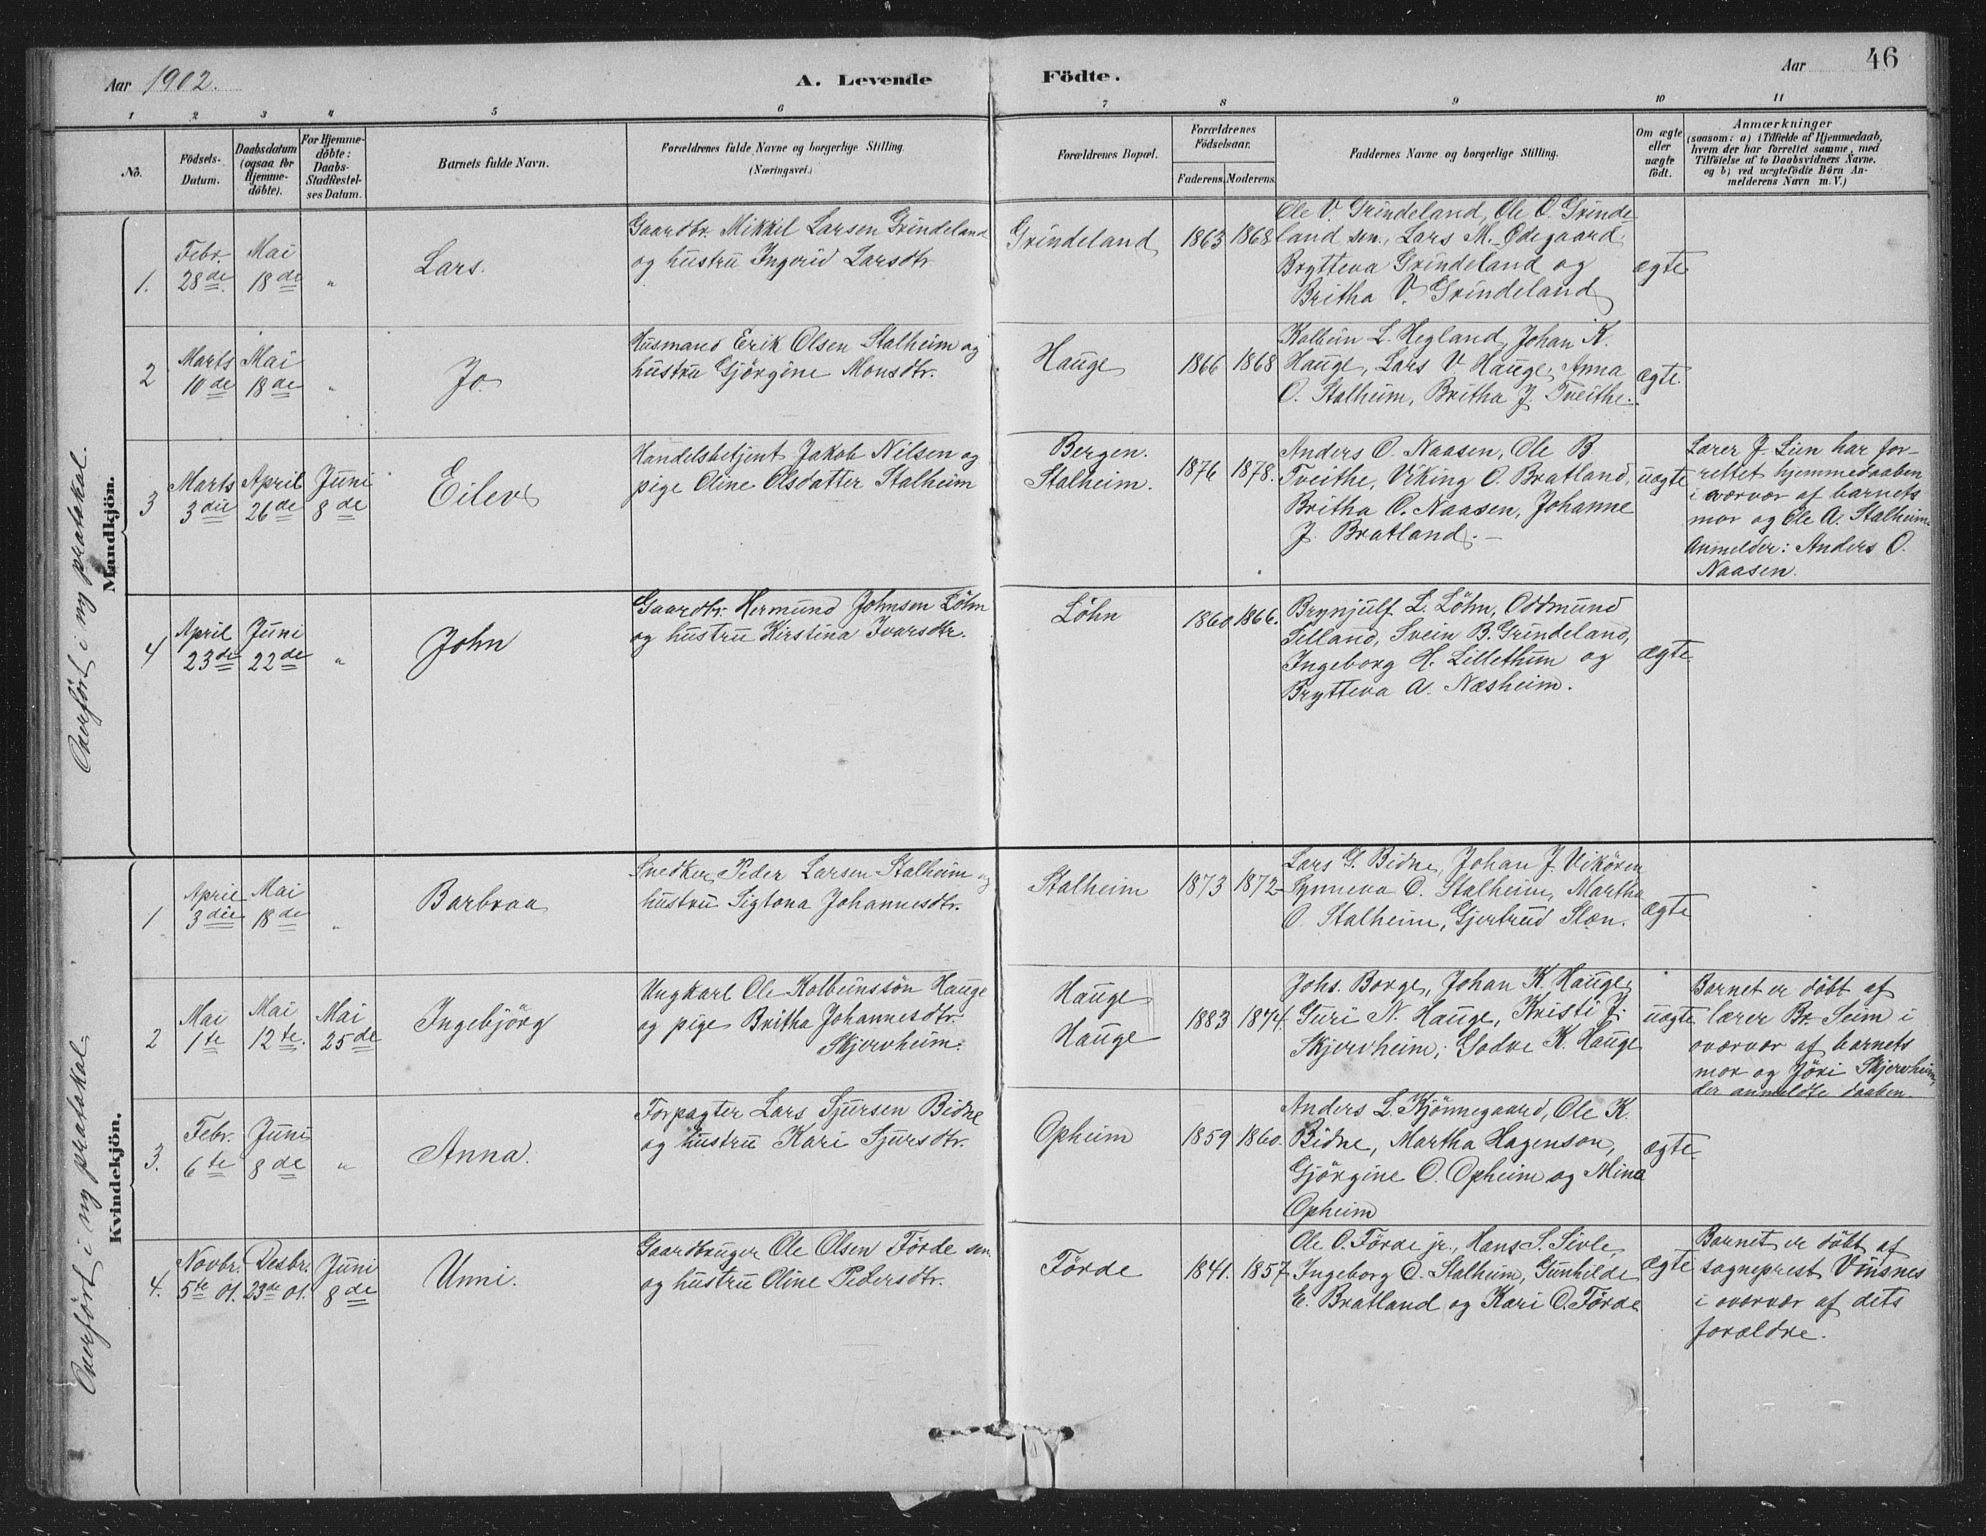 Aar 1902.
A. Levende Födte.
Aar 46
1 2 3 4 5 6 7 8 9 10 11
No.
Födsels-
Datum.
Daabsdatum
(ogsaa for
Hjemme-
döbte).
For Hjemme-
döbte:
Daabs-
Stadfæstel-
ses Datum.
Barnets fulde Navn.
Forældrenes fulde Navne og borgerlige Stilling.
(Næringsvei.)
Forældrenes Bopæl.
Forældrenes
Födselsaar.
Faderens. Moderens.
Faddernes Navne og borgerlige Stilling.
Om ægte
eller
uægte
födt.
Anmærkninger
(saasom: a) i Tilfælde af Hjemmedaab,
hvem der har forrettet samme, med
Tilföielse af to Daabsvidners Navne.
og b) ved uægtefödte Börn An-
melderens Navn m. V.)
Mandkjön.
Overfört i ny pratakal.
1.
Febr.
28de
Mai
18de
"
Lars.
Gaardbr. Mikkil Larsen Grindeland
og hustru Ingerid Larsdtr.
Grindeland
1863 1868
Ole V. Grindeland, Ole O. Grinde-
land sen., Lars M. Ødegaard,
Brytteva Grindeland og
Britha V. Grindeland
ægte
2
Marts
10de
Mai
18de
"
Jo
Husmand Erik Olsen Stalheim og
hustru Gjörgine Monsdtr.
Hauge
1866 1868
Kolbein L. Hegland, Johan K.
Hauge, Lars V. Hauge, Anna
O. Stalheim, Britha J. Tveithe.
ægte.
3
Marts
3die
April
26de
Juni
8de
Eilev
Handelsbetjent Jakob Nilsen og
pige Oline Olsdatter Stalheim
Bergen.
Stalheim.
1876 1878.
Anders O. Naasen, Ole B
Tveithe, Viking O. Bratland,
Britha O. Naasen, Johanne
J. Bratland. —
uægte
Lærer J. Lien har for-
rettet hjemmedaaben
i overvær af barnets
mor og Ole A. Stalheim.
Anmelder: Anders O.
Naasen.
4
April
23de
Juni
22de
"
John
Gaardbr. Hermund Johnsen Löhn
og hustru Kirstina Ivarsdtr.
Löhn
1860 1866.
Brynjulf L. Löhn, Oddmund
Filland, Svein B. Grindeland,
Ingeborg H. Lillethun og
Brytteva A. Næsheim.
ægte
Kvindekjön.
Overfört i ny pratakal.
1
April
3die
Mai
18de
"
Barbraa
Snedker Peder Larsen Stalheim og
hustru Sigtona Johannesdtr.
Stalheim
1873 1872
Lars G. Bidne, Johan J. Vikören
Synneva O. Stalheim, Martha
O. Stalheim, Gjertrud Slæn.
ægte
2
Mai
1te
Mai
12te.
Mai
25de
Ingebjörg
Ungkarl Ole Kolbeinssön Hauge
og pige Britha Johannesdtr.
Skjervheim.
Hauge
Hauge
1883 1874.
Johs. Borge, Johan K. Hauge,
Guri N. Hauge, Kristi J.
Skjervheim, Godve K. Hauge
uægte
Barnet er döbt af
lærer Br. Seim i
overvær af barnets
mor og Jöri Skjervheim,
der anmeldte daaben.
3.
Febr.
6te
Juni
8de
"
Anna.
Forpagter Lars Sjursen Bidne
og hustru Kari Sjursdtr.
Opheim
1859 1860.
Anders L. Kjönnegaard, Ole K.
Bidne, Martha Hagenson,
Gjörgine O. Opheim og Mina
Opheim
ægte.
4.
Novbr.
5te 01.
Desbr.
23de 01.
Juni
8de
Unni.
Gaardbruger Ole Olsen Förde sen.
og hustru Oline Pedersdtr.
Förde
1841. 1857
Ole O. Förde jr., Hans S. Sivle,
Ingeborg O. Stalheim, Gunhilde
E. Bratland og Kari O. Förde
ægte
Barnet er döbt af
sogneprest Vinsnes
i overvær af dets
forældre.